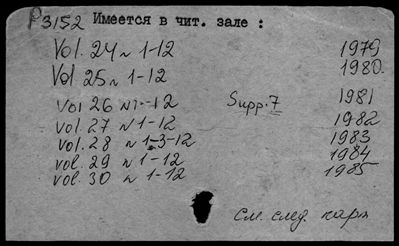 Р3152 Имеется в чит. зале :
Vol. 24 N 1-12 1979
Vol 25 N 1-12 1980
Vol 26 N 1-12 Supp. 7 1981
vol. 27 N 1-12 1982
vol. 28 N 1-3-12 1983
vol. 29 N 1-12 1984
vol. 30 N 1-12 1985
См. след. карт